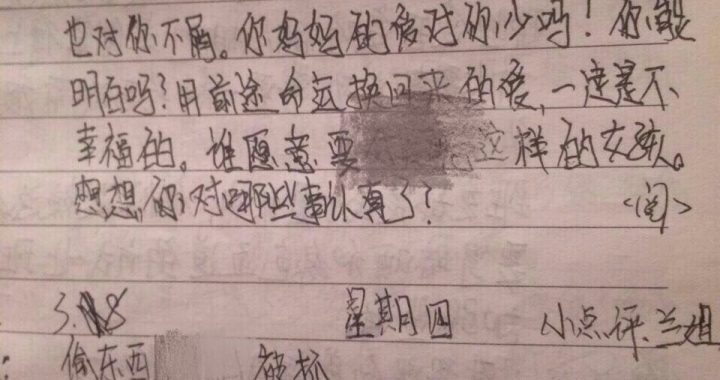 也对你不屑。你妈妈的爱对你少吗！你能
明白吗？用前途命运换回来的爱，一定是不
幸福的。谁愿意要 这样的女孩。
想想，你对哪些事认真了？ <阅>
3.18 星期四 小点评.兰姐
: 偷东西 被抓